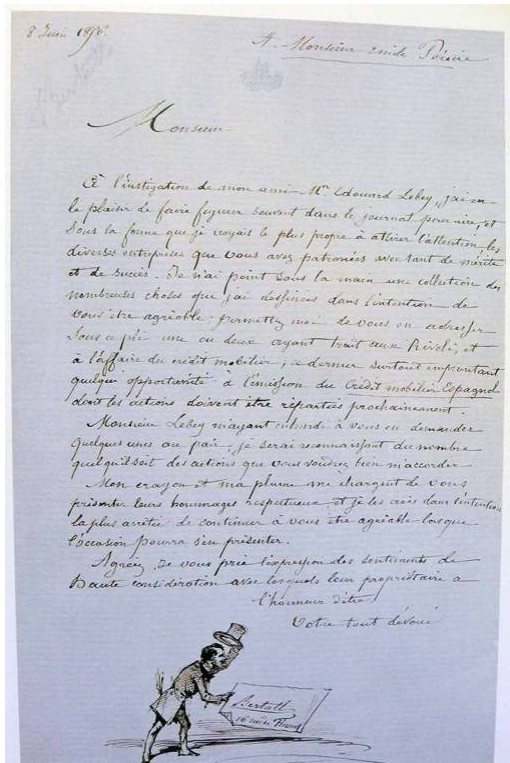 8 Juin 1856.
A. Monsieur Emile Péreire
Monsieur
à l'instigation de mon ami Mr. Edouard Lebey, j'ai eu
le plaisir de faire figurer souvent dans le journal pour rire, et
sous la forme que je croyais le plus propre à attirer l'attention, les
diverses entreprises que vous avez patronées avec tant de mérite
et de succès. Je n'ai point sous la main une collection des
nombreuses choses que j'ai dessinées dans l'intention de
vous être agréable. permettez moi de vous en adresser
sous ce pli une ou deux ayant trait aux et
à l'affaire du crédit mobilier; ce dernier surtout empruntant
quelque opportunité à l'émission du Crédit mobilier Espagnol
dont les actions doivent être réparties prochainement.
Monsieur Lebey m'ayant enhardi à vous en demander
quelques unes au pair, je serai reconnaissant du nombre
quel qu'il soit des actions que vous voudrez bien m'accorder
Mon crayon et ma plume me chargent de vous
présenter leurs hommages respectueux et je les crois dans l'intention
la plus arrêtée de continuer à vous être agréable lorsque
l'occasion pourra s'en présenter.
Agréez, je vous prie l'expression des sentiments de
haute considération avec lesquels leur propriétaire a
l'honneur d'être
Votre tout dévoué
Bertall
16